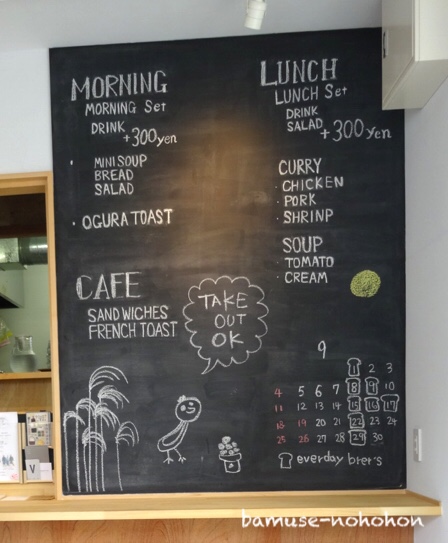 MORNING
MORNING Set
DRINK
+300yen
MINI SOUP
BREAD
SALAD
· OGURA TOAST
LUNCH
LUNCH Set
DRINK
SALAD
+300yen
CURRY
· CHICKEN
· PORK
· SHRINP
SOUP
· TOMATO
· CREAM
CAFE
SANDWICHES
FRENCH TOAST
TAKE
OUT
OK
9
1 2 3
4 5 6 7 8 9 10
11 12 13 14 15 16 17
18 19 20 21 22 23 24
25 26 27 28 29 30
everday brer's
V
bamuse-nohohon